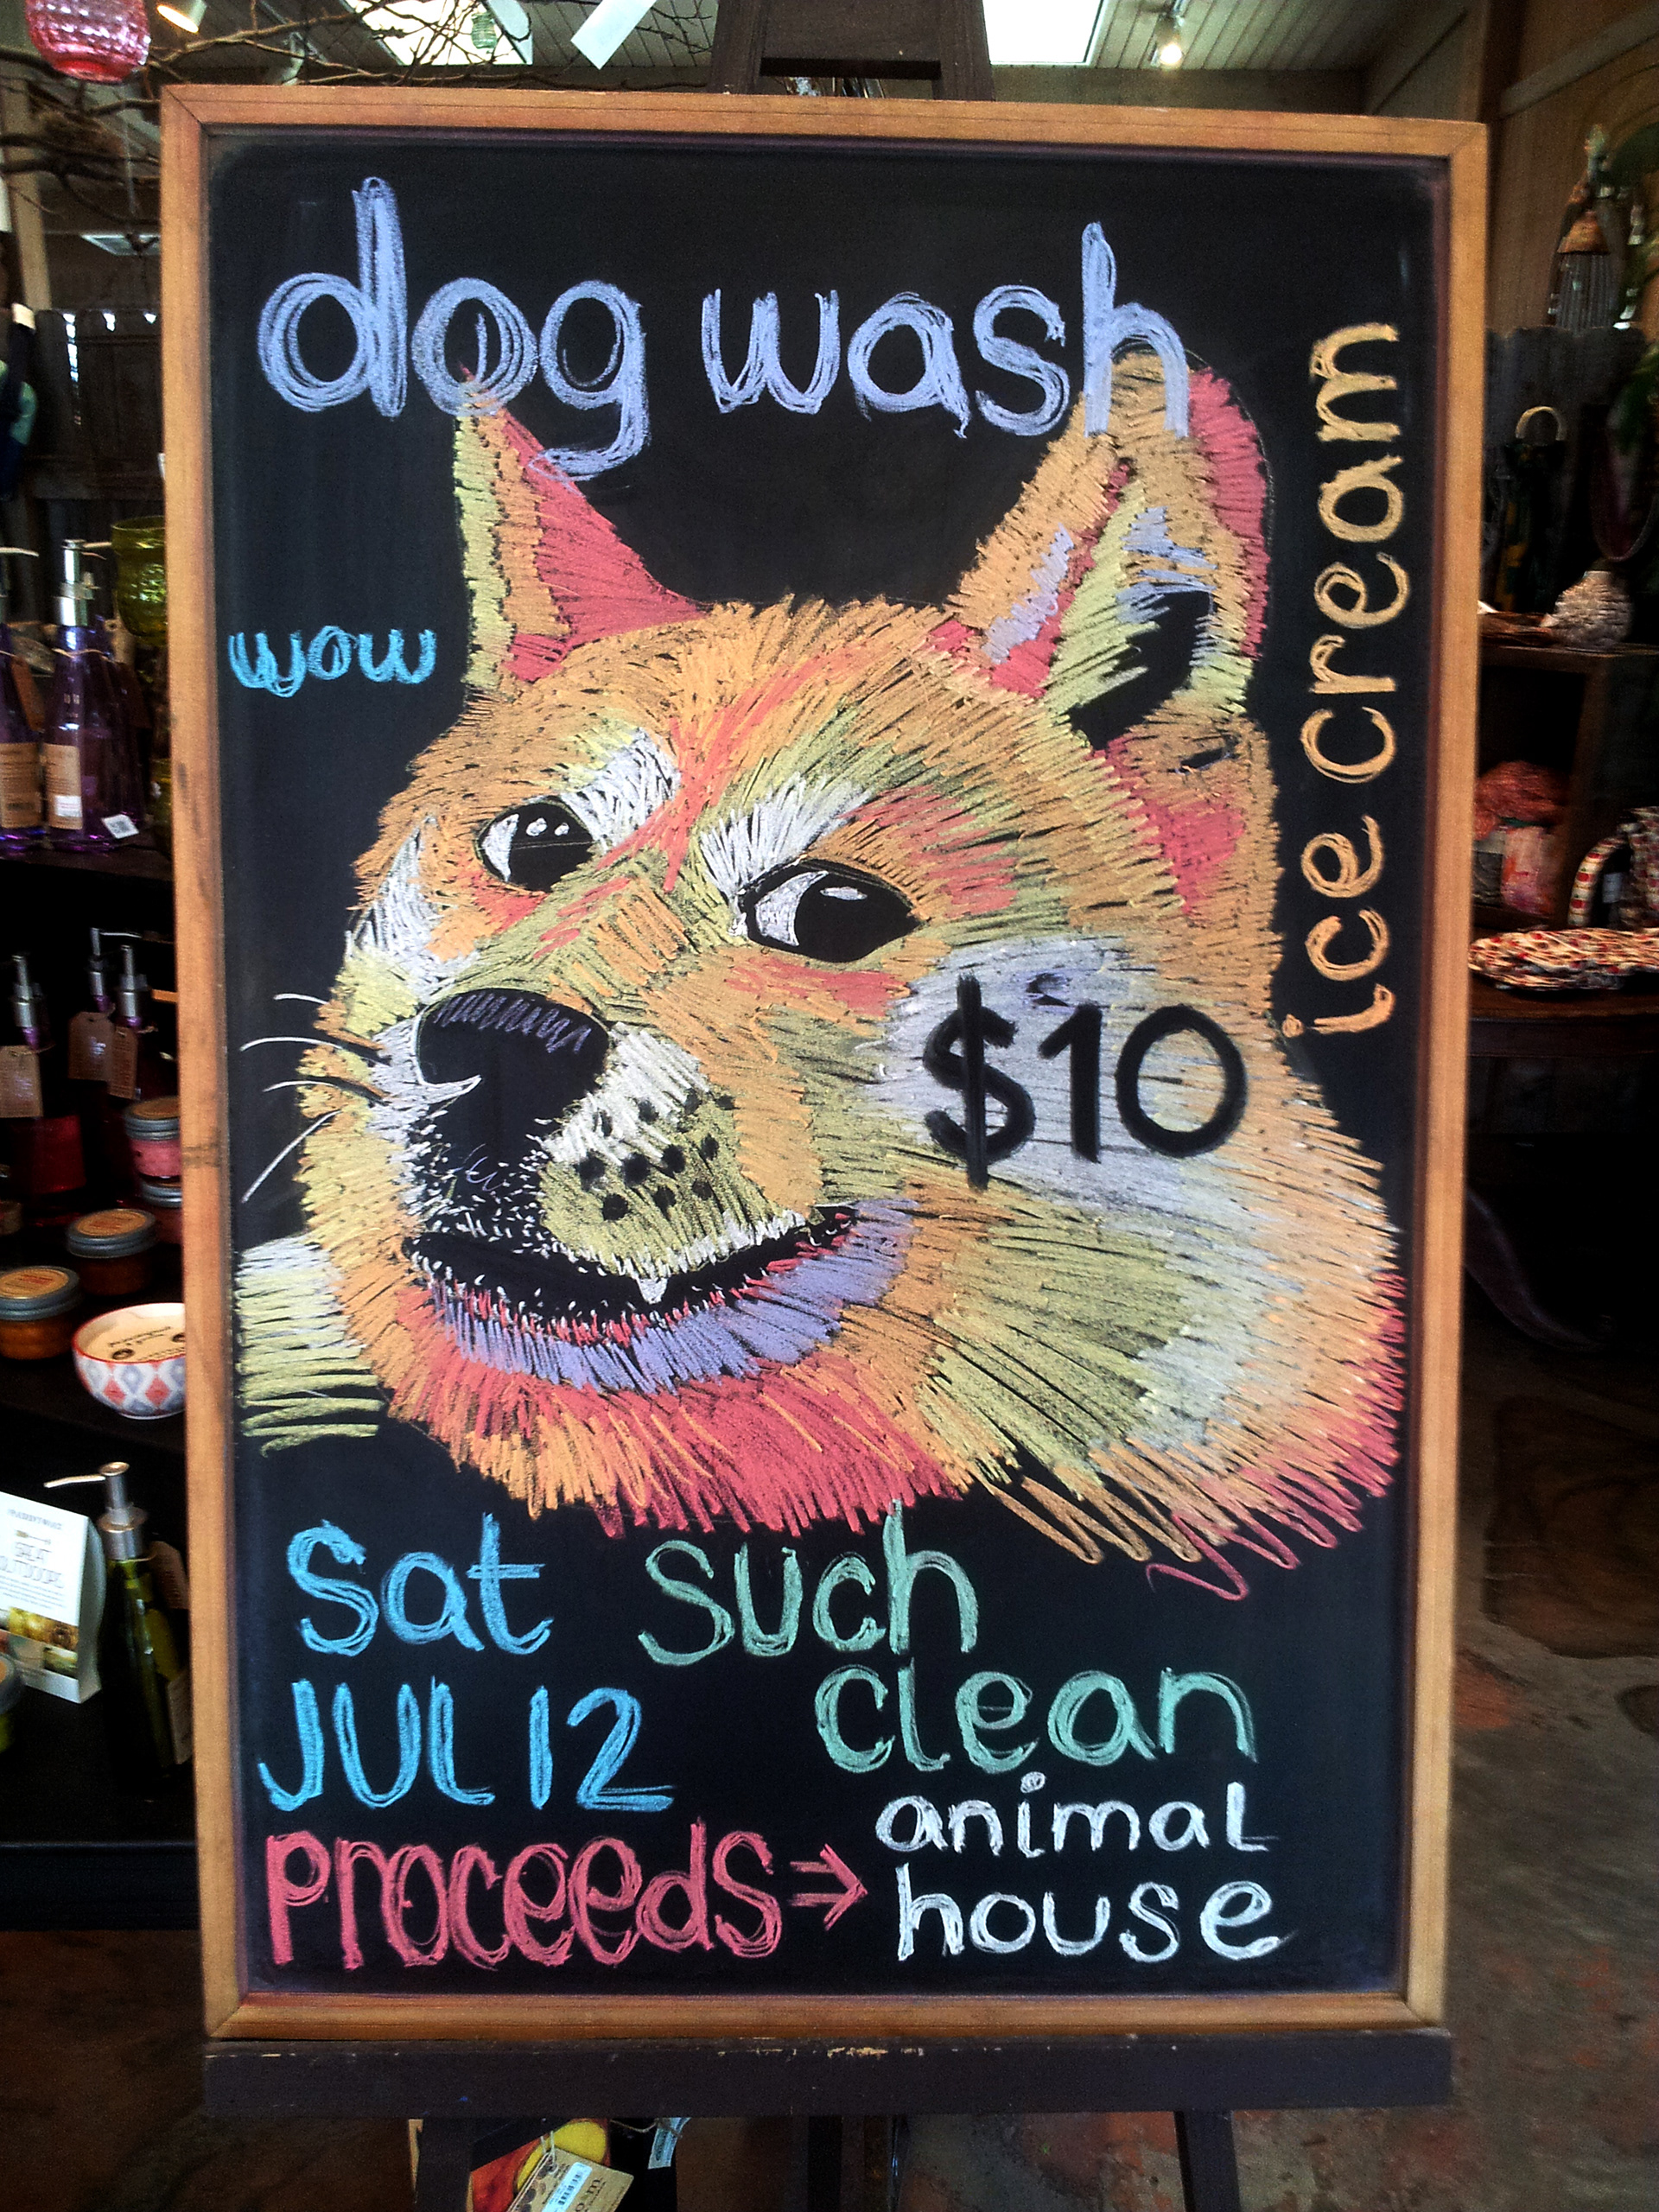 dog wash
wow
ice cream
$10
Sat such
JUL 12 clean
proceeds→ animal
house